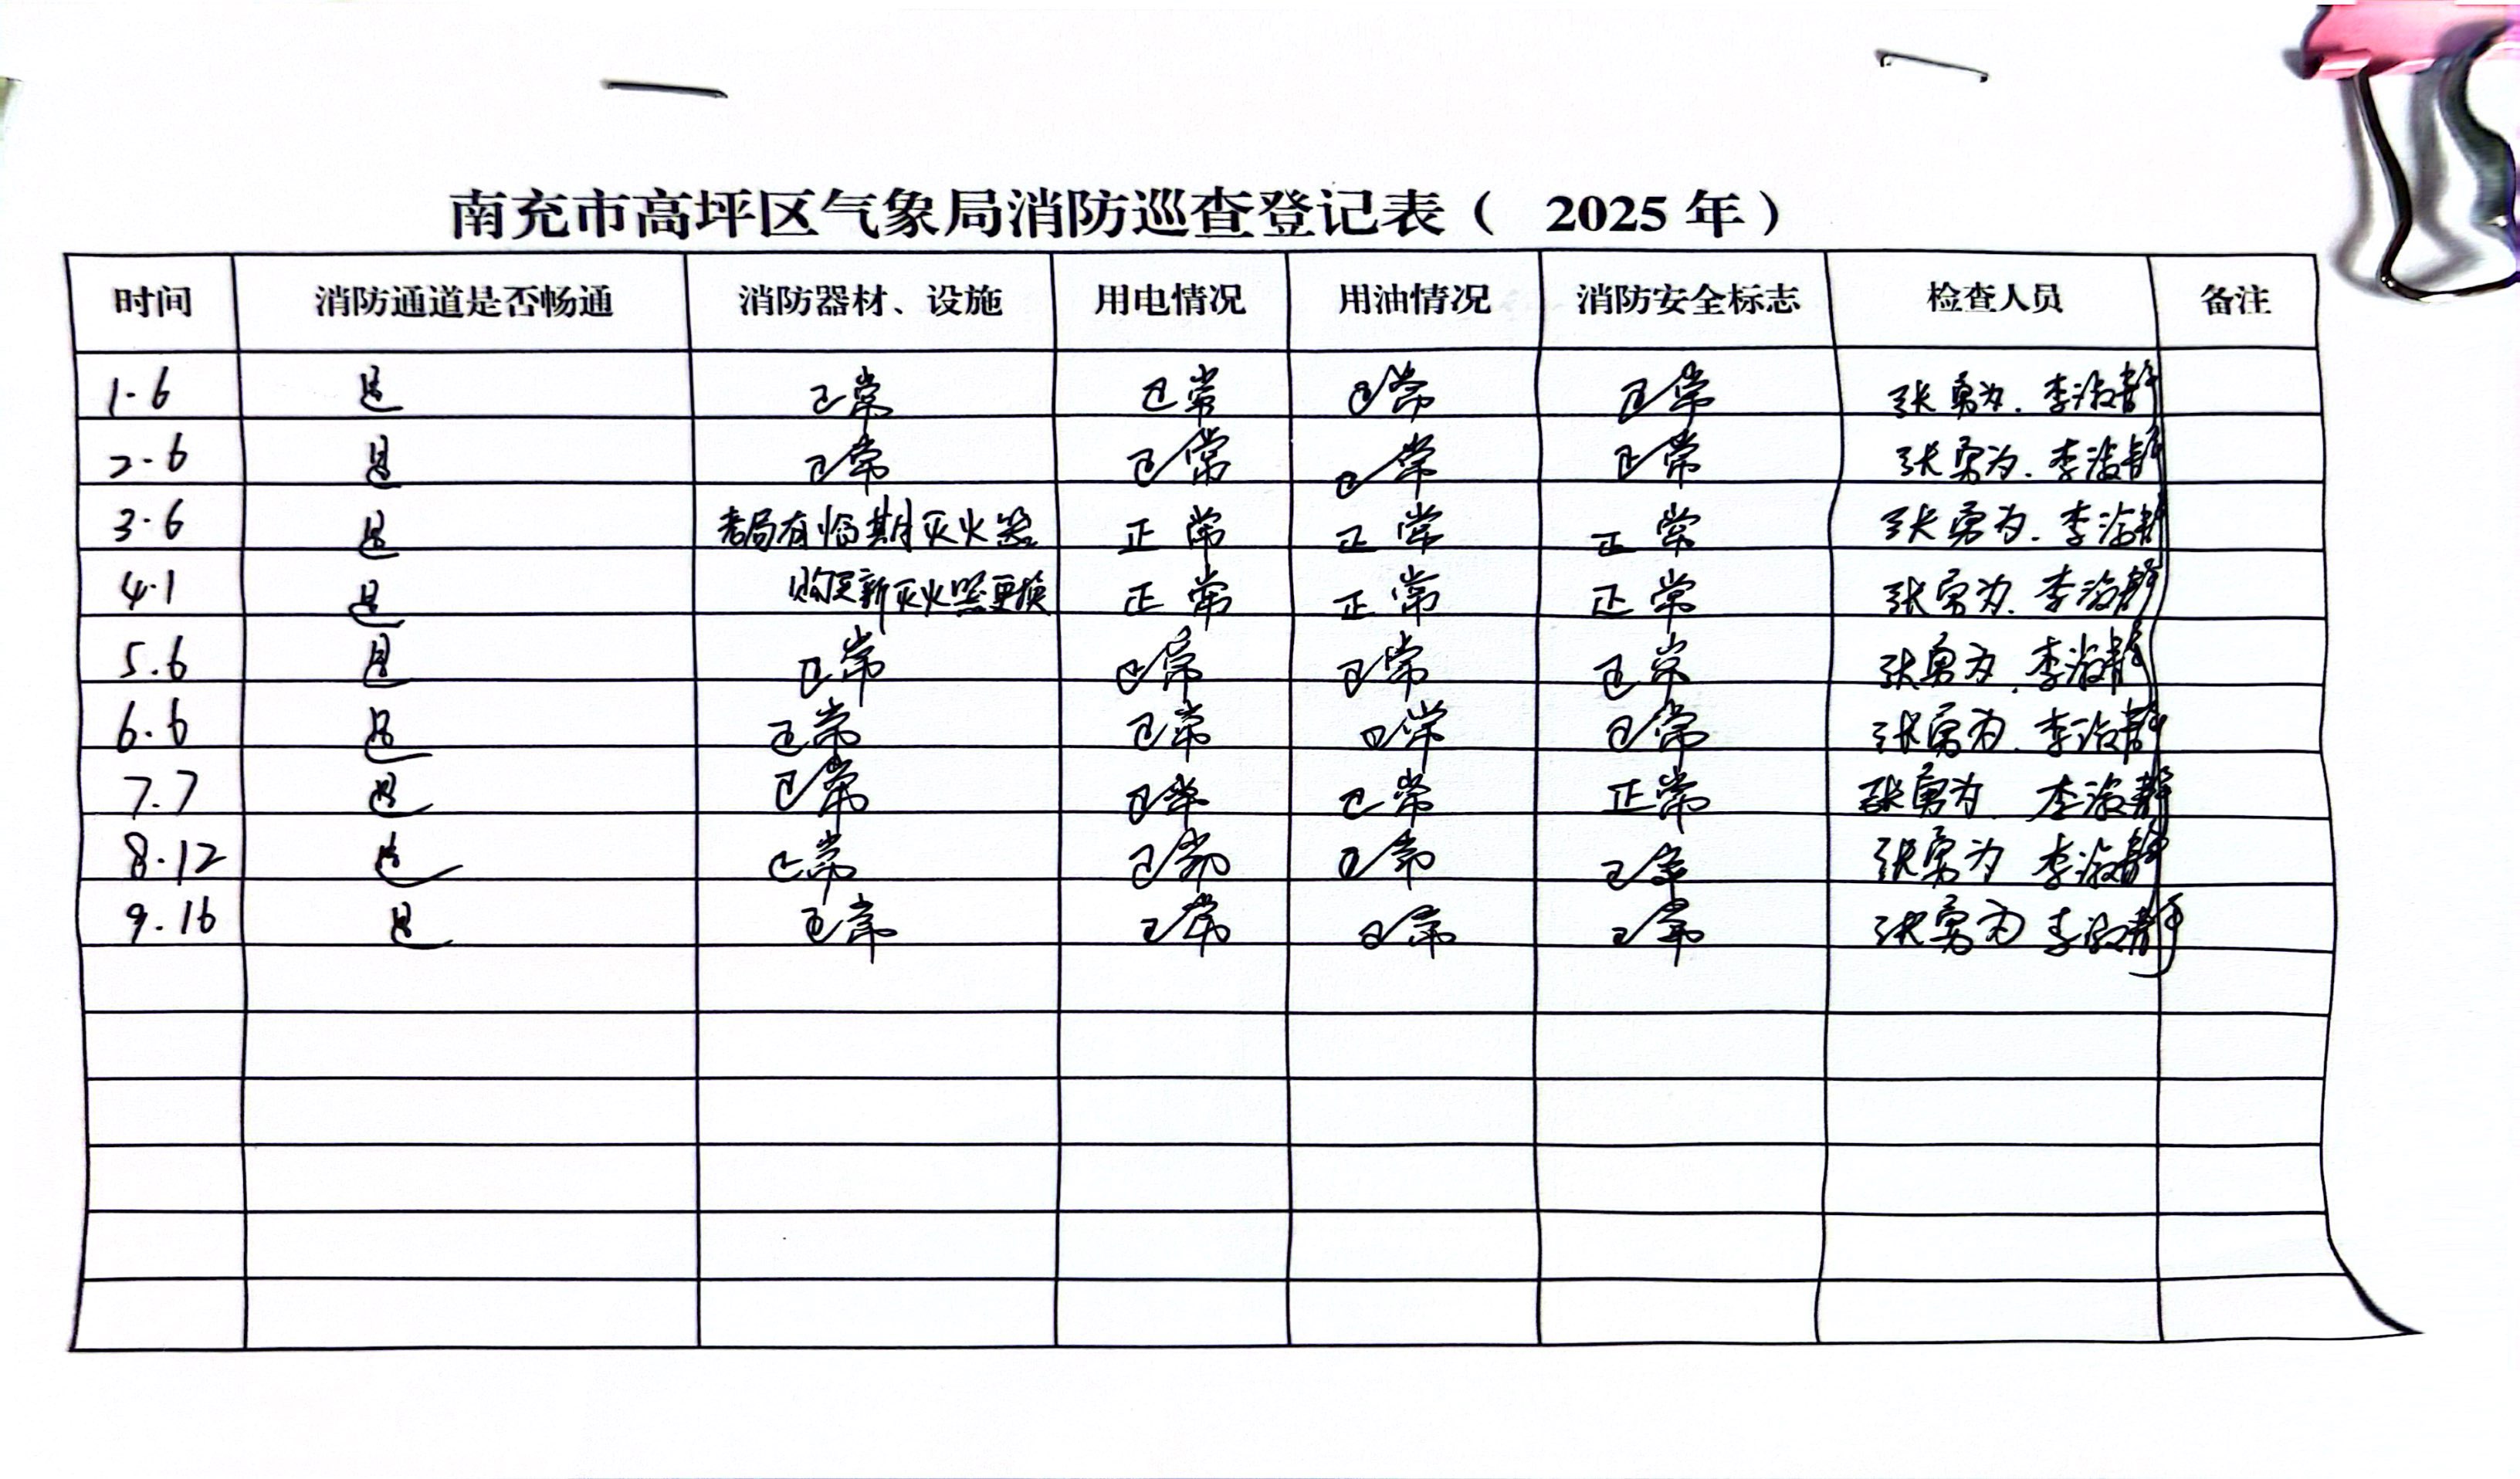 南充市高坪区气象局消防巡查登记表（ 2025 年）
时间 消防通道是否畅通 消防器材、设施 用电情况 用油情况 消防安全标志 检查人员 备注
1.6 是 正常 正常 正常 正常 张勇为.李淑静
2.6 是 正常 正常 正常 正常 张勇为.李淑静
3.6 是 老局有临期灭火器 正常 正常 正常 张勇为.李淑静
4.1 是 购买新灭火器更换 正常 正常 正常 张勇为.李淑静
5.6 是 正常 正常 正常 正常 张勇为.李淑静
6.6 是 正常 正常 正常 正常 张勇为.李淑静
7.7 是 正常 正常 正常 正常 张勇为 李淑静
8.12 是 正常 正常 正常 正常 张勇为 李淑静
9.16 是 正常 正常 正常 正常 张勇为 李淑静